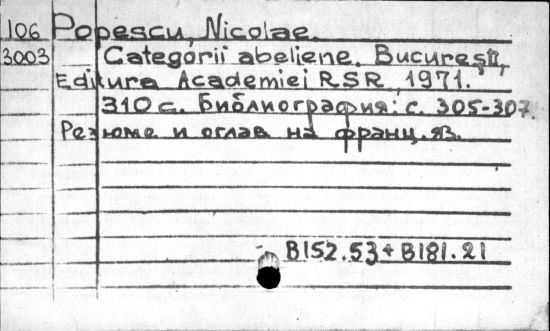 106 Popescu, Nicolae.
3003 Categorii abeliene. Bucureşti,
Editura Academiei RSR, 1971.
310 с. Библиография: с. 305-307.
Резюме и оглав. на франц. яз.
В152.53+В181.21